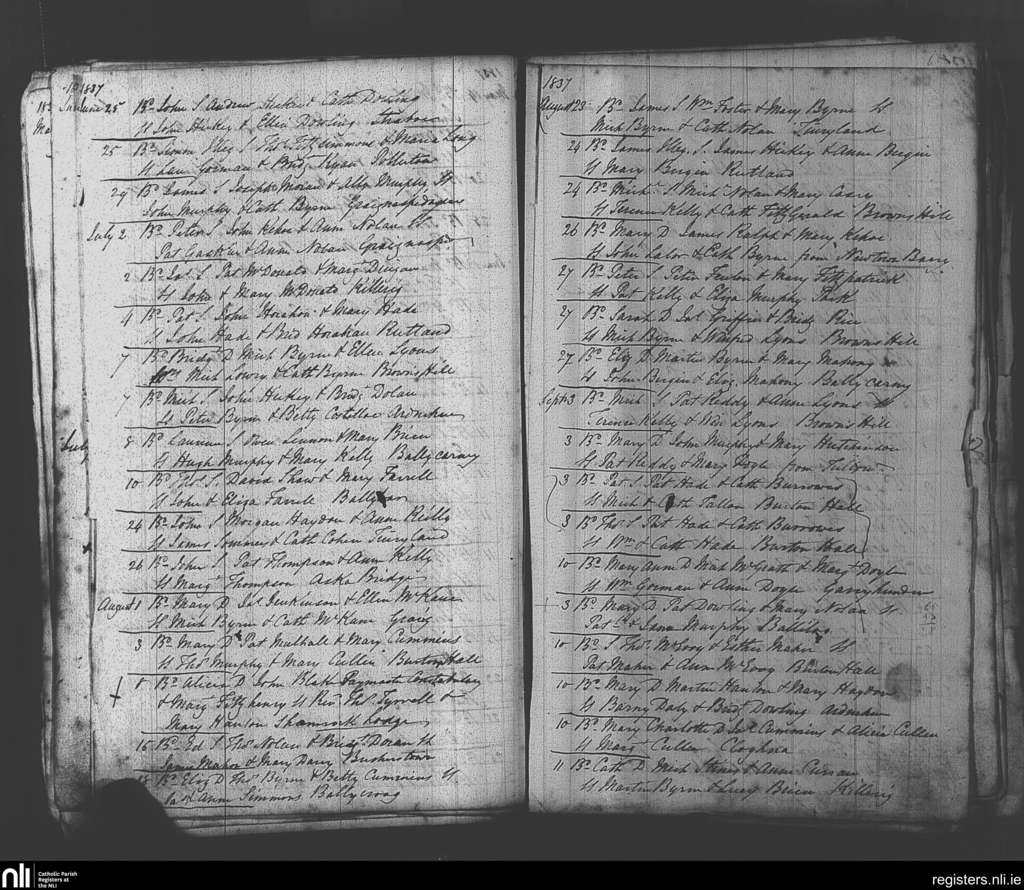 1837
June 25 Bd. John S. Andrew Hickey & Cath Dowling
Ss John Hickey & Ellen Dowling
25 Bd. Simon Illeg. S. Thos Fitzsimmons & Maria Long
Ss Lau Gorman & Bridg Pollerton
29 Bd. James S. Joseph Moran & Alley Murphy Ss
John Murphy & Cath Byrn
July 2 Bd. Peter S. John Kehoe & Ann Nolan Ss
Pat & Ann Nolan
2 Bd. Jas S. Pat McDonald & Marg
Ss John & Mary McDonald Killerig
4 Bd. Pat S. John Horahan & Mary Hade
Ss John Hade & Brid Horahan Rutland
7 Bd. Bridg D. Mich Byrn & Ellen Lyons
Ss Mich Lowry & Cath Byrne Browns Hill
7 Bd. Mich S. John Hickey & Bridg Dolan
Ss Peter Byrn & Betty Costelloe
July 8 Bd. Laurence S. Owen Lennon & Mary Brien
Ss Hugh Murphy & Mary Kelly Ballycarney
10 Bd. Thos S. David Shaw & Mary Farrell
Ss John & Eliza Farrell
24 Bd. John S. Morgan Haydon & Ann Reilly
Ss James & Cath Tinryland
26 Bd. John S. Pat Thompson & Ann Kelly
Ss Marg Thompson Aska Bridge
August 1 Bd. Mary D. Jas Jenkinson & Ellen McKane
Ss Mich Byrn & Cath McKane Graig
3 Bd. Mary D. Pat Mulhall & Mary Cummins
Ss Thos Murphy & Mary Cullen Burton Hall
8 Bd. Alicia D. John Blake Paymaster Constabulary
& Marg Fitzhenry Ss Revd Thos Tyrrell &
Mary Hanlon Shamrock Lodge
15 Bd. Ed S. Thos Nolan & Bridg Doran Ss
James Maher & Mary Darcy Busherstown
18 Bd. Eliz D. Thos Byrn & Betty Cummins Ss
Jas & Ann Simmons
1837
August 23 Bd. James S. Wm Foster & Mary Byrne Ss
Mich Byrn & Cath Nolan Tinryland
24 Bd. James Illeg. S. James Hickey & Anne Bergin
Ss Mary Bergin Rutland
24 Bd. Mich S. Mich Nolan & Mary Casey
Ss Terence Kelly & Cath Fitzgerald Browns Hill
26 Bd. Mary D. James Ralph & Mary Kehoe
Ss John Lalor & Cath Byrne from Newtown Barry
27 Bd. Peter S. Peter & Mary Fitzpatrick
Ss Pat Kelly & Eliza Murphy Park
27 Bd. Sarah D. Jas Griffin & Bridg Rice
Ss Mich Byrn & Winifred Lyons Browns Hill
27 Bd. Eliz D. Martin Byrne & Mary Mahony
Ss John Bergin & Eliz. Mahony Ballycarney
Sept 3 Bd. Mich S. Pat Reddy & Ann Lyons Ss
Terence Kelly & Win Lyons Browns Hill
3 Bd. Mary D. John Murphy & Mary Hutchinson
Ss Pat Reddy & Mary Doyle from Tullow
3 Bd. Pat S. Pat Hade & Cath Burrowes
Ss Mich & Cath Fallon Burton Hall
3 Bd. Thos S. Pat Hade & Cath Burrowes
Ss Wm & Cath Hade Burton Hall
10 Bd. Mary Ann D. Mich McGrath & Margt Doyle
Ss Wm Gorman & Ann Doyle Garryhundon
3 Bd. Mary D. Pat Dowling & Mary Nolan Ss
Pat & Murphy
10 Bd. S. Thos McEvoy & Esther Maher Ss
Pat Maher & Ann McEvoy Burton Hall
10 Bd. Mary D. Martin Hanlon & Mary Haydon
Ss Barny Daly & Bridg Dowling
10 Bd. Mary Charlotte D. Jas Cummins & Alicia Cullen
Ss Marg Cullen Cloghna
11 Bd. Cath D. Mich & Ann Curran
Ss Martin Byrn & Lucy Brien Killerig
nli
Catholic Parish
Registers at
the NLI
registers.nli.ie